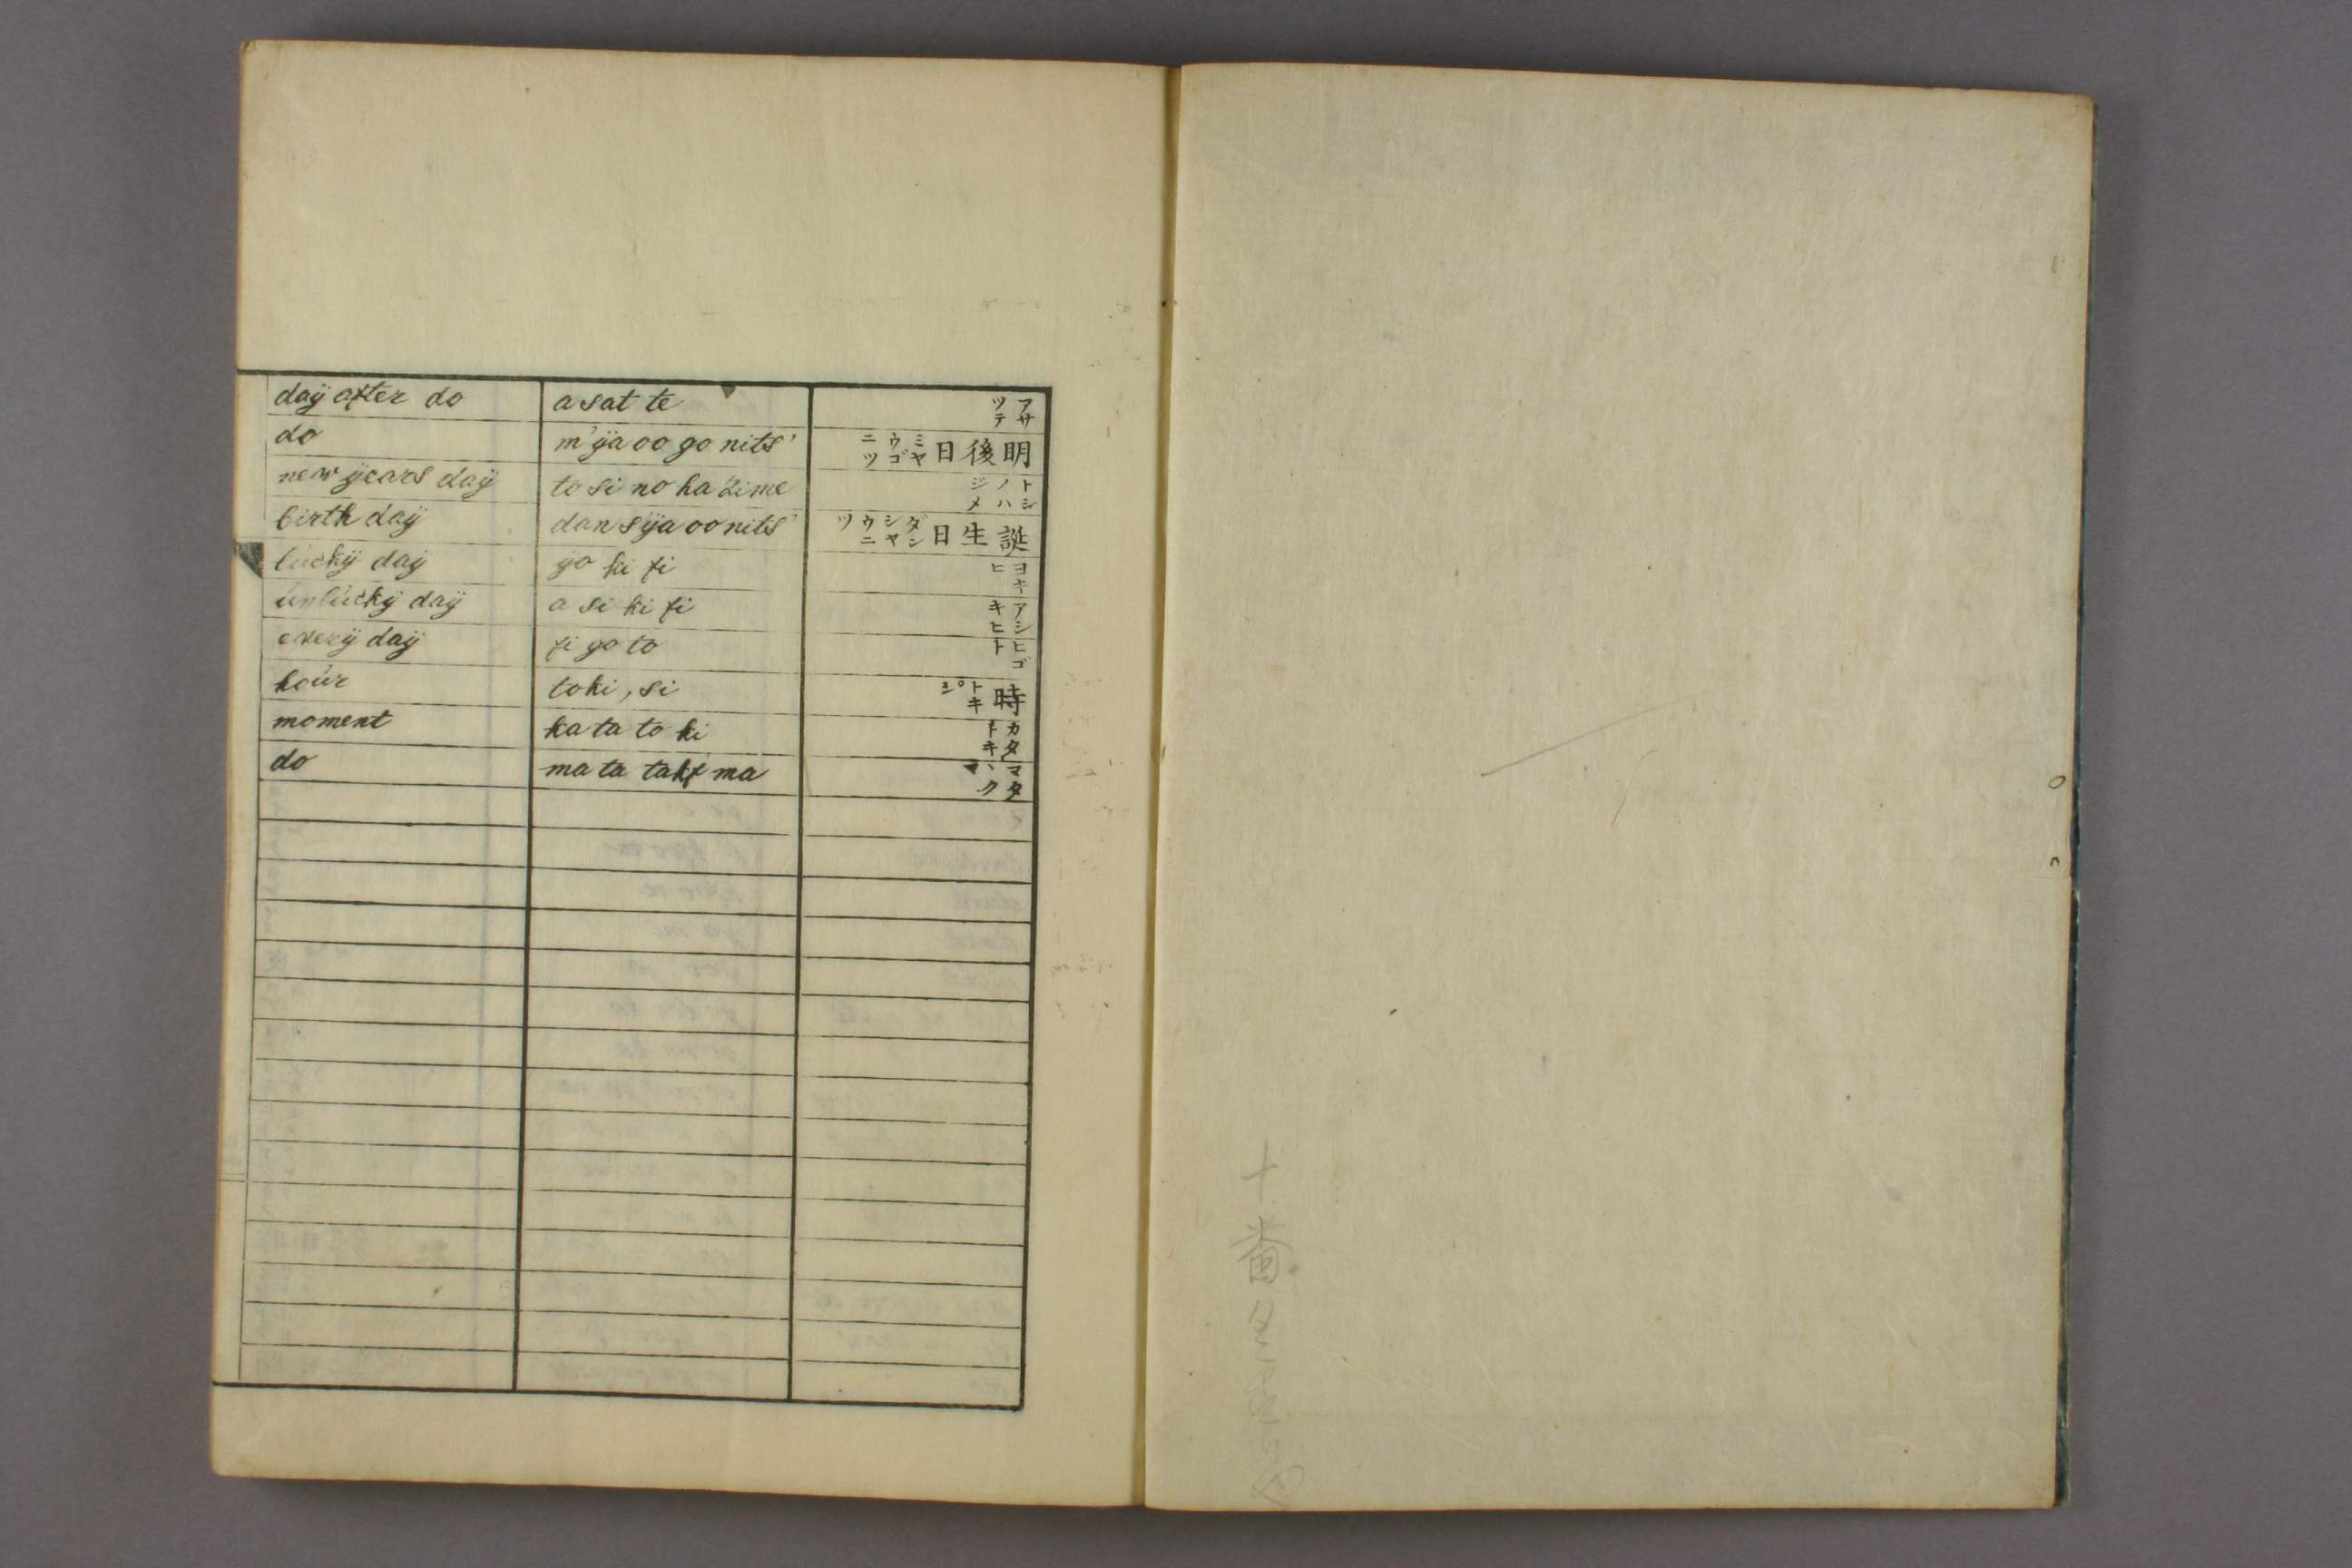 daÿ after do a sat te アサツテ
do m'ÿa oo go nits' 明後日 ミヤウゴニツ
new ÿears daÿ to si no ha zi me トシノハジメ
birth daÿ dan sÿa oo nits' 誕生日 ダンシヤウニツ
luckÿ daÿ ÿo ki fi ヨキヒ
unluckÿ daÿ a si ki fi アシキヒ
everÿ daÿ fi go to ヒゴト
hour toki, si 時 トキ シ
moment ka ta to ki カタトキ
do ma ta takf ma マタクハマ
十番